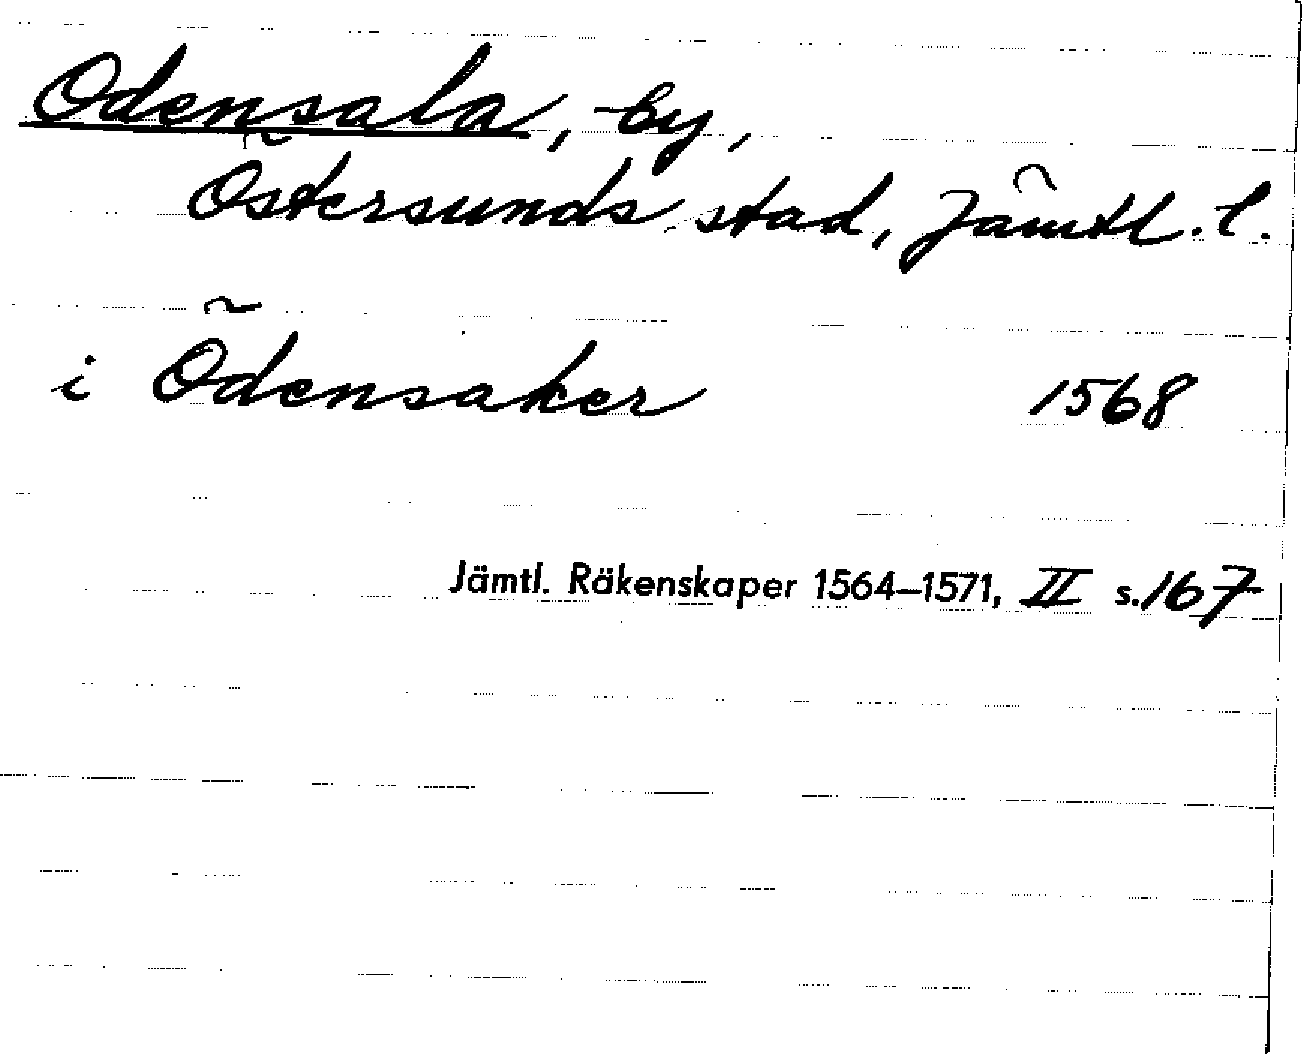 Odensala, by,
Östersunds stad, Jämtl. l.
i Ödensaker 1568
Jämtl. Räkenskaper 1564–1571, II s. 167